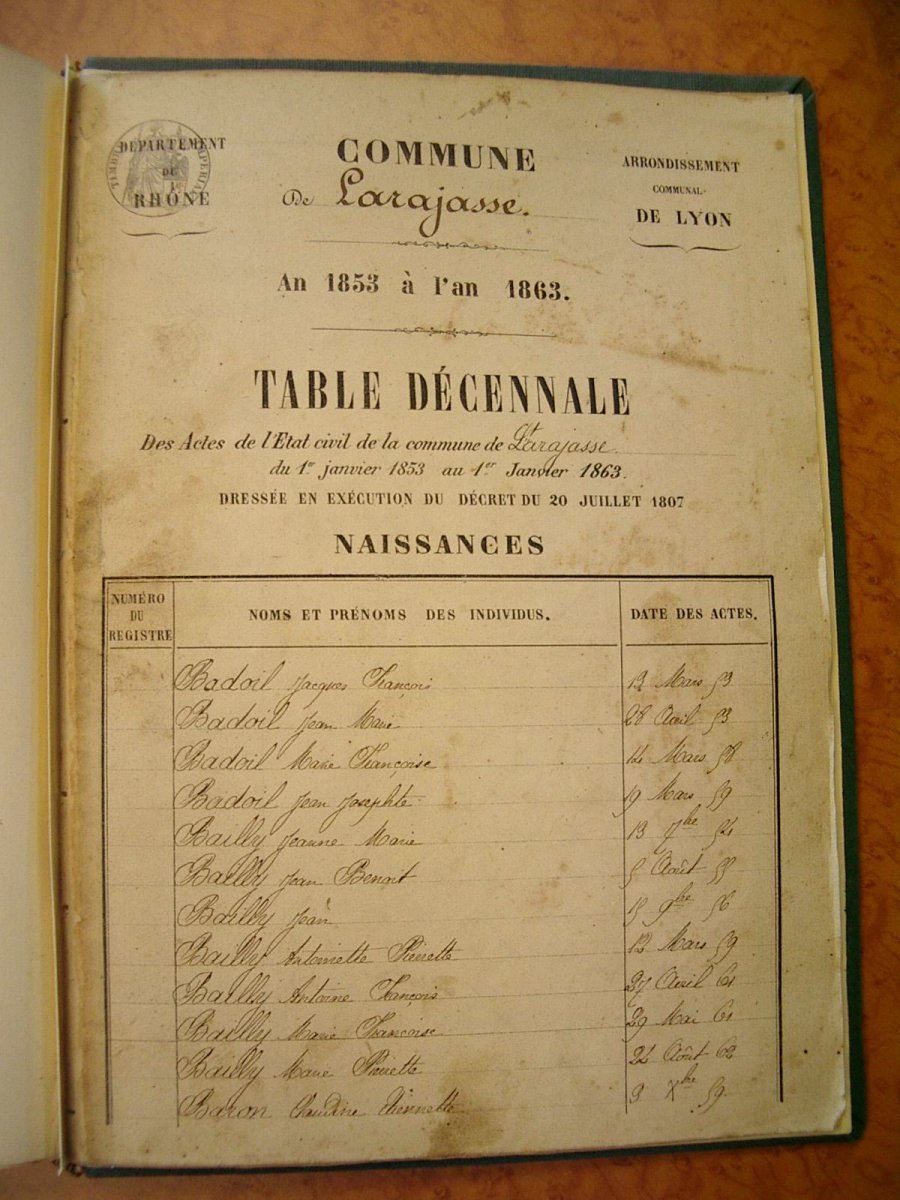 DÉPARTEMENT
DU
RHÔNE
TIMBRE IMPERIAL
COMMUNE
De Larajasse.
ARRONDISSEMENT
COMMUNAL
DE LYON
An 1853 à l'an 1863.
TABLE DÉCENNALE
Des Actes de l'Etat civil de la commune de Larajasse.
du 1er janvier 1853 au 1er Janvier 1863.
DRESSÉE EN EXÉCUTION DU DÉCRET DU 20 JUILLET 1807
NAISSANCES
NUMÉRO
DU
REGISTRE
NOMS ET PRÉNOMS DES INDIVIDUS.
DATE DES ACTES.
Badoil Jacques François 13 Mars 53
Badoil Jean Marie 28 Avril 53
Badoil Marie Françoise 14 Mars 58
Badoil Jean Josephte 19 Mars 59
Bailly Jeanne Marie 13 7bre 54
Bailly Jean Benoit 5 Août 55
Bailly Jean 15 9bre 56
Bailly Antoinette Pierrette 12 Mars 59
Bailly Antoine François 27 Avril 61
Bailly Marie Françoise 29 Mai 61
Bailly Marie Pierrette 24 Août 62
Baron Claudine Etiennette 3 Xbre 59